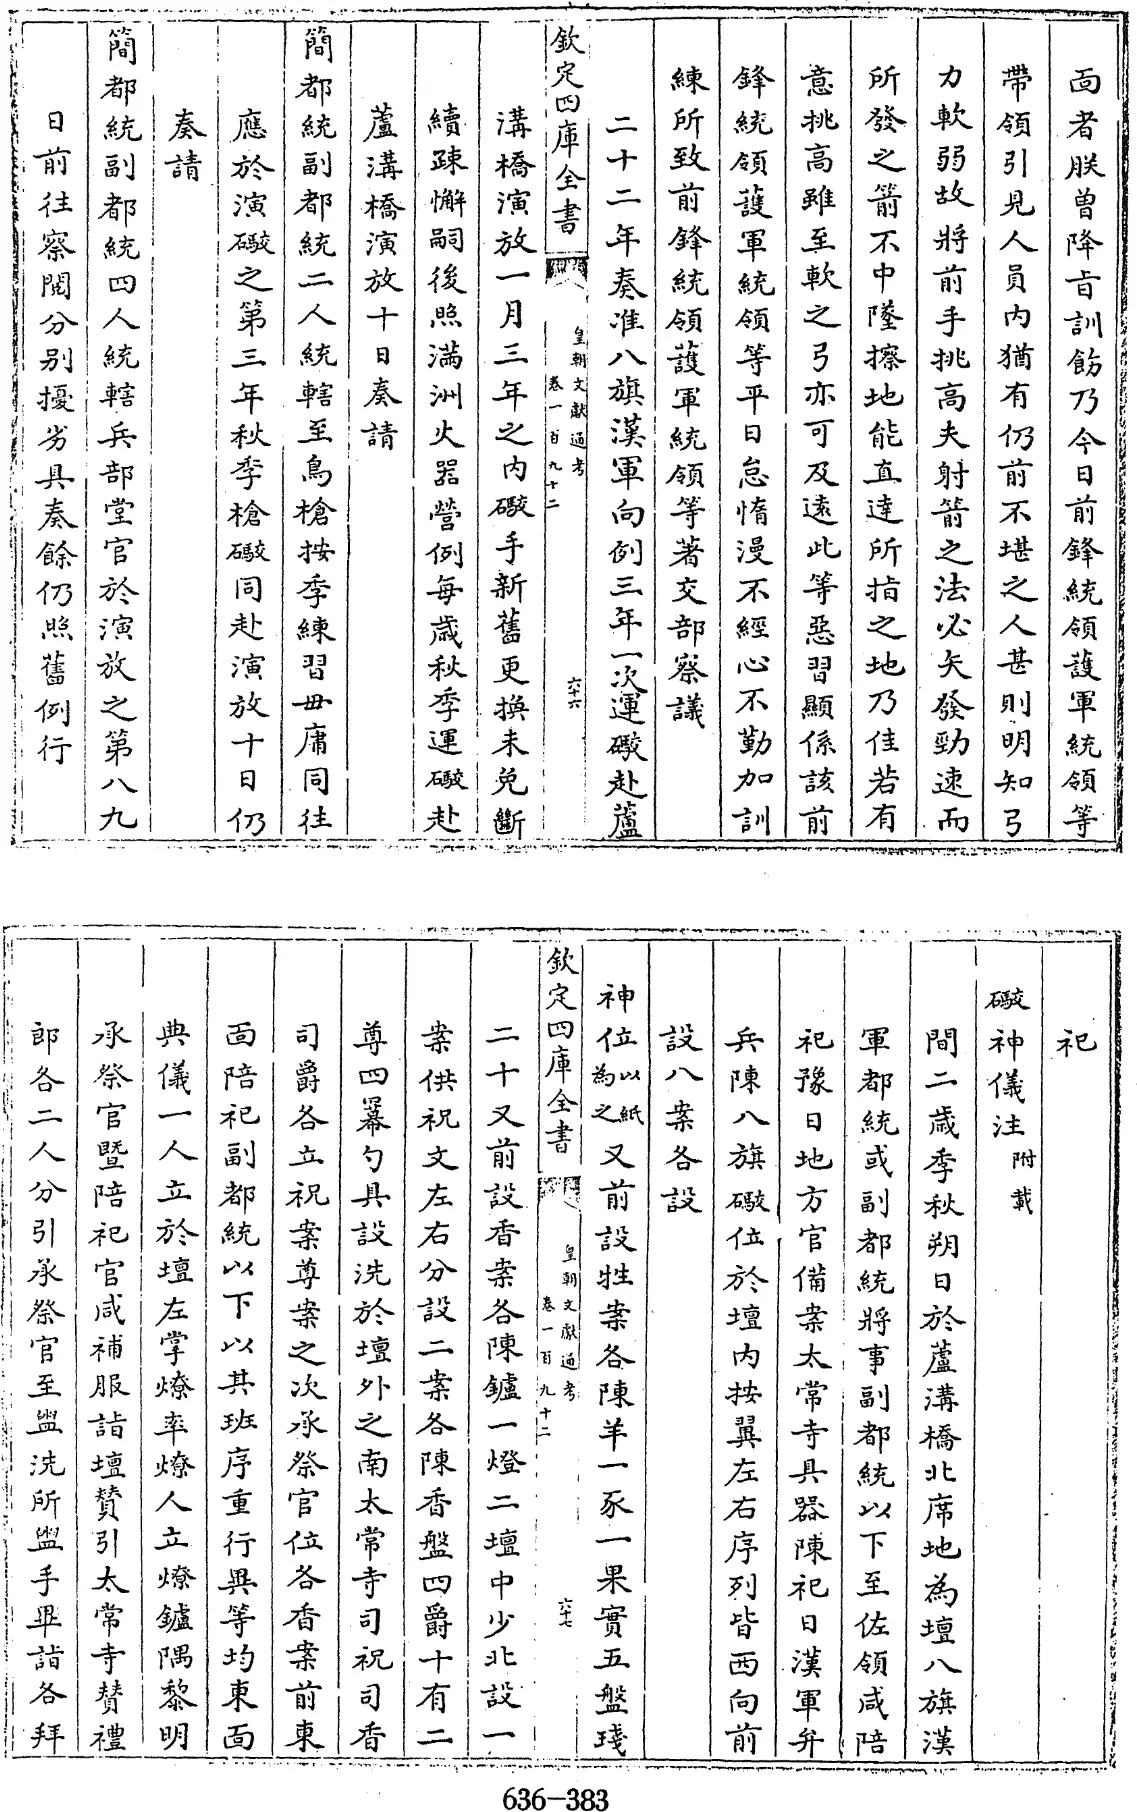 面者朕曾降旨訓飭乃今日前鋒統領護軍統領等
帶領引見人員内猶有仍前不堪之人甚則明知弓
力軟弱故將前手挑高夫射箭之法必矢發勁速而
所發之箭不中墜擦地能直達所指之地乃佳若有
意挑高雖至軟之弓亦可及遠此等惡習顯係該前
鋒統領護軍統領等平日怠惰漫不經心不勤加訓
練所致前鋒統領護軍統領等著交部察議
二十二年奏准八旗漢軍向例三年一次運礮赴蘆
欽定四庫全書
皇朝文獻通考
卷一百九十二
六十六
溝橋演放一月三年之内礮手新舊更換未免斷
續疎懈嗣後照滿洲火器營例每歲秋季運礮赴
蘆溝橋演放十日奏請
簡都統副都統二人統轄至鳥槍按季練習毋庸同往
應於演礮之第三年秋季槍礮同赴演放十日仍
奏請
簡都統副都統四人統轄兵部堂官於演放之第八九
日前往察閲分别擾劣具奏餘仍照舊例行
祀
礮神儀注附載
間二歲季秋朔日於蘆溝橋北席地為壇八旗漢
軍都統或副都統將事副都統以下至佐領咸陪
祀豫日地方官備案太常寺具器陳祀日漢軍弁
兵陳八旗礮位於壇内按翼左右序列皆西向前
設八案各設
神位以紙為之又前設牲案各陳羊一豕一果實五盤琖
欽定四庫全書
皇朝文獻通考
卷一百九十二
六十七
二十又前設香案各陳鑪一燈二壇中少北設一
案供祝文左右分設二案各陳香盤四爵十有二
尊四冪勺具設洗於壇外之南太常寺司祝司香
司爵各立祝案尊案之次承祭官位各香案前東
面陪祀副都統以下以其班序重行異等均東面
典儀一人立於壇左掌燎率燎人立燎鑪隅黎明
承祭官暨陪祀官咸補服詣壇贊引太常寺贊禮
郎各二人分引承祭官至盥洗所盥手畢詣各拜
636-383